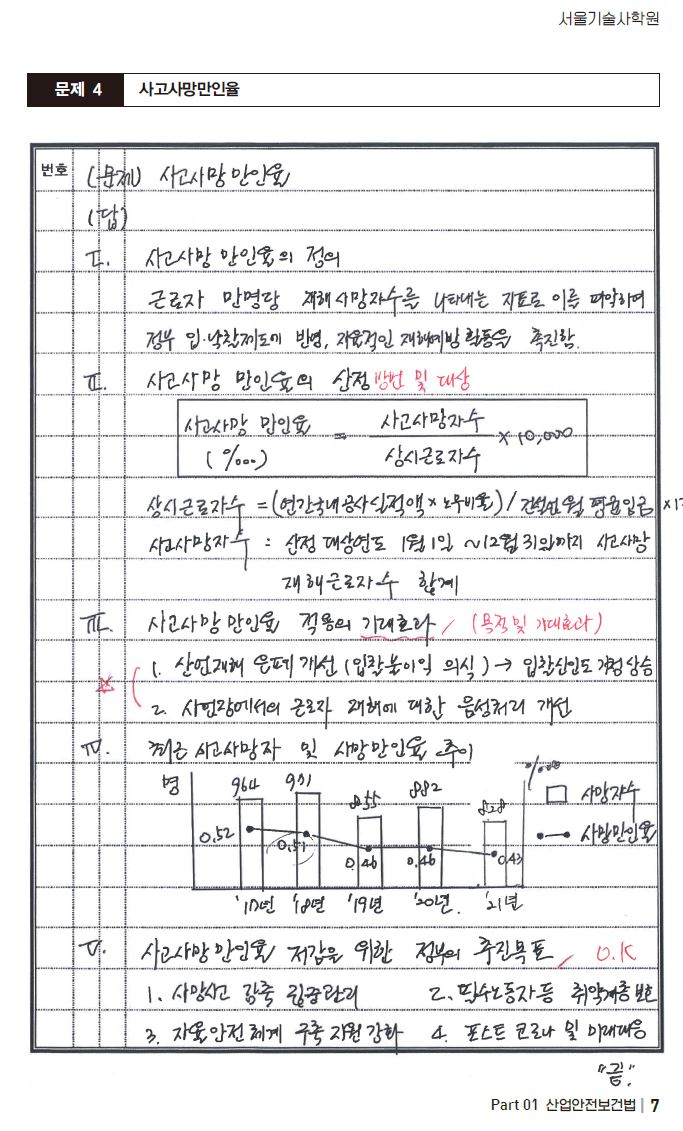 서울기술사학원
문제 4 사고사망만인율
번호 (문제) 사고사망만인율
(답)
I. 사고사망 만인율의 정의
근로자 만명당 재해사망자수를 나타내는 지표로 이를 파악하며
정부 입·낙찰제도에 반영, 자율적인 재해예방 활동을 촉진함.
II. 사고사망 만인율의 산정 방법 및 대상
사고사망 만인율 (‱) = 사고사망자수 / 상시근로자수 × 10,000
상시근로자수 = (연간국내공사실적액 × 노무비율) / 건설업월평균임금 ×12
사고사망자수 : 산정 대상연도 1월1일 ~12월31일까지 사고사망
재해근로자수 합계
III. 사고사망만인율 적용의 기대효과 / (목적 및 기대효과)
1. 산업재해 은폐 개선 (입찰불이익 의식) → 입찰신인도 가점상승
2. 사업장에서의 근로자 재해에 대한 음성처리 개선
IV. 최근 사고사망자 및 사망만인율 추이
명 ‱
964 971 855 882 828
사망자수
사망만인율
0.52 0.51 0.46 0.46 0.43
'17년 '18년 '19년 '20년. '21년
V. 사고사망만인율 저감을 위한 정부의 추진목표 / O.K
1. 사망사고 감축 집중관리 2. 필수노동자등 취약계층 보호
3. 자율안전체계 구축 지원 강화 4. 포스트 코로나 및 미래대응
"끝."
Part 01 산업안전보건법 | 7